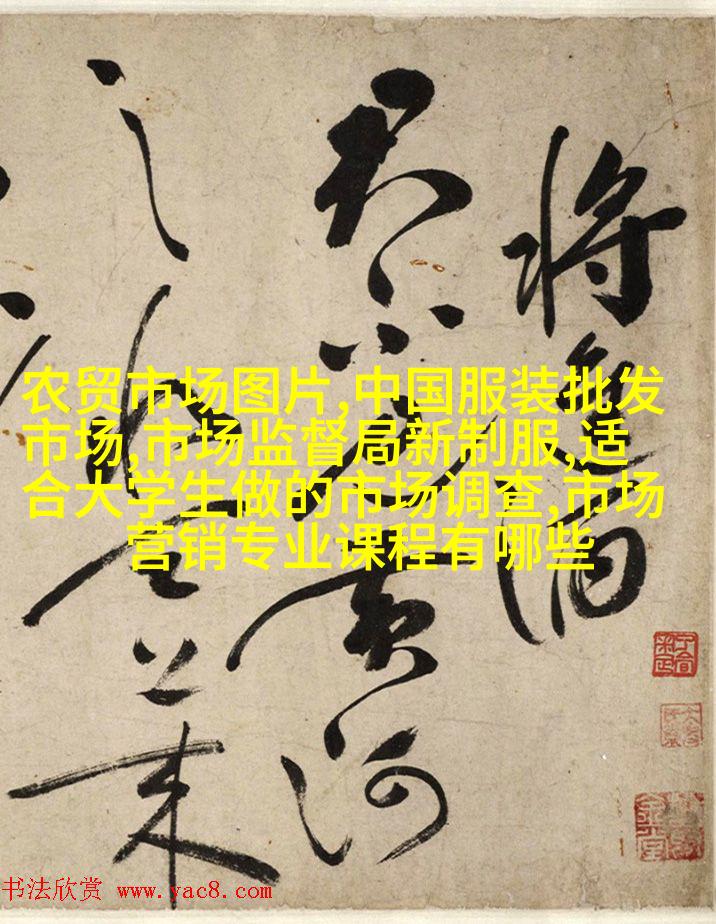 将進酒
君不見黄河
之水天上来
农贸市场图片,中国服装批发
市场,市场监督局新制服,适
合大学生做的市场调查,市场
营销专业课程有哪些
书法欣赏 www.yac8.com